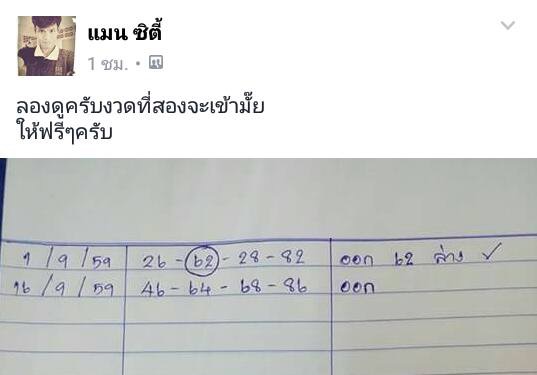 แมน ซิตี้
1 ชม.
ลองดูครับงวดที่สองจะเข้ามั๊ย
ให้ฟรีๆครับ
1 / 9 / 59 26 - 62 - 28 - 82 ออก 62 ล่าง ✓
16 / 9 / 59 46 - 64 - 68 - 86 ออก